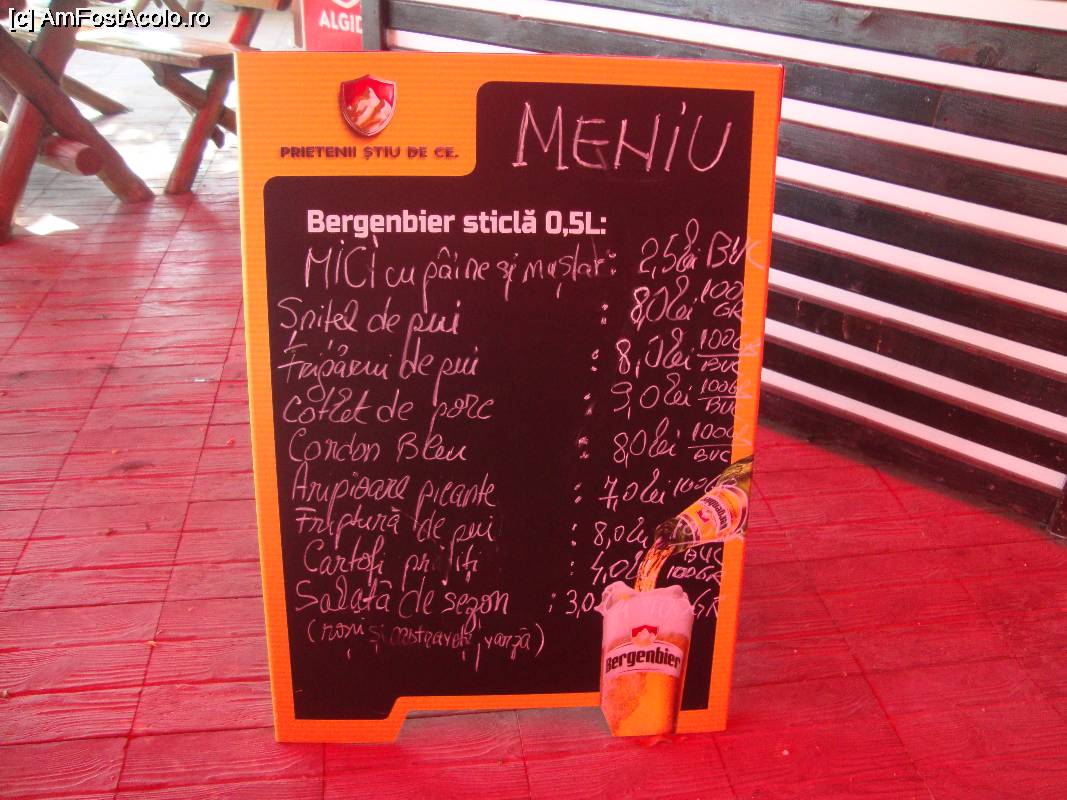 [c] AmFostAcolo.ro
ALGID
PRIETENII ȘTIU DE CE.
MENIU
Bergenbier sticlă 0,5L:
MICI cu pâine și muștar: 2,5lei BUC
Șnițel de pui : 8,0lei 100 GR
Frigărui de pui : 8,0lei 100G BUC
Cotlet de porc : 9,0lei 100GR BUC
Cordon Bleu : 8,0lei 100G BUC
Aripioare picante : 7,0lei 100G
Friptură de pui : 8,0lei BUC
Cartofi prăjiți : 4,0lei 100GR
Salată de sezon : 3,0 GR
(roșii și castraveți, varză)
Bergenbier
Bergenbier